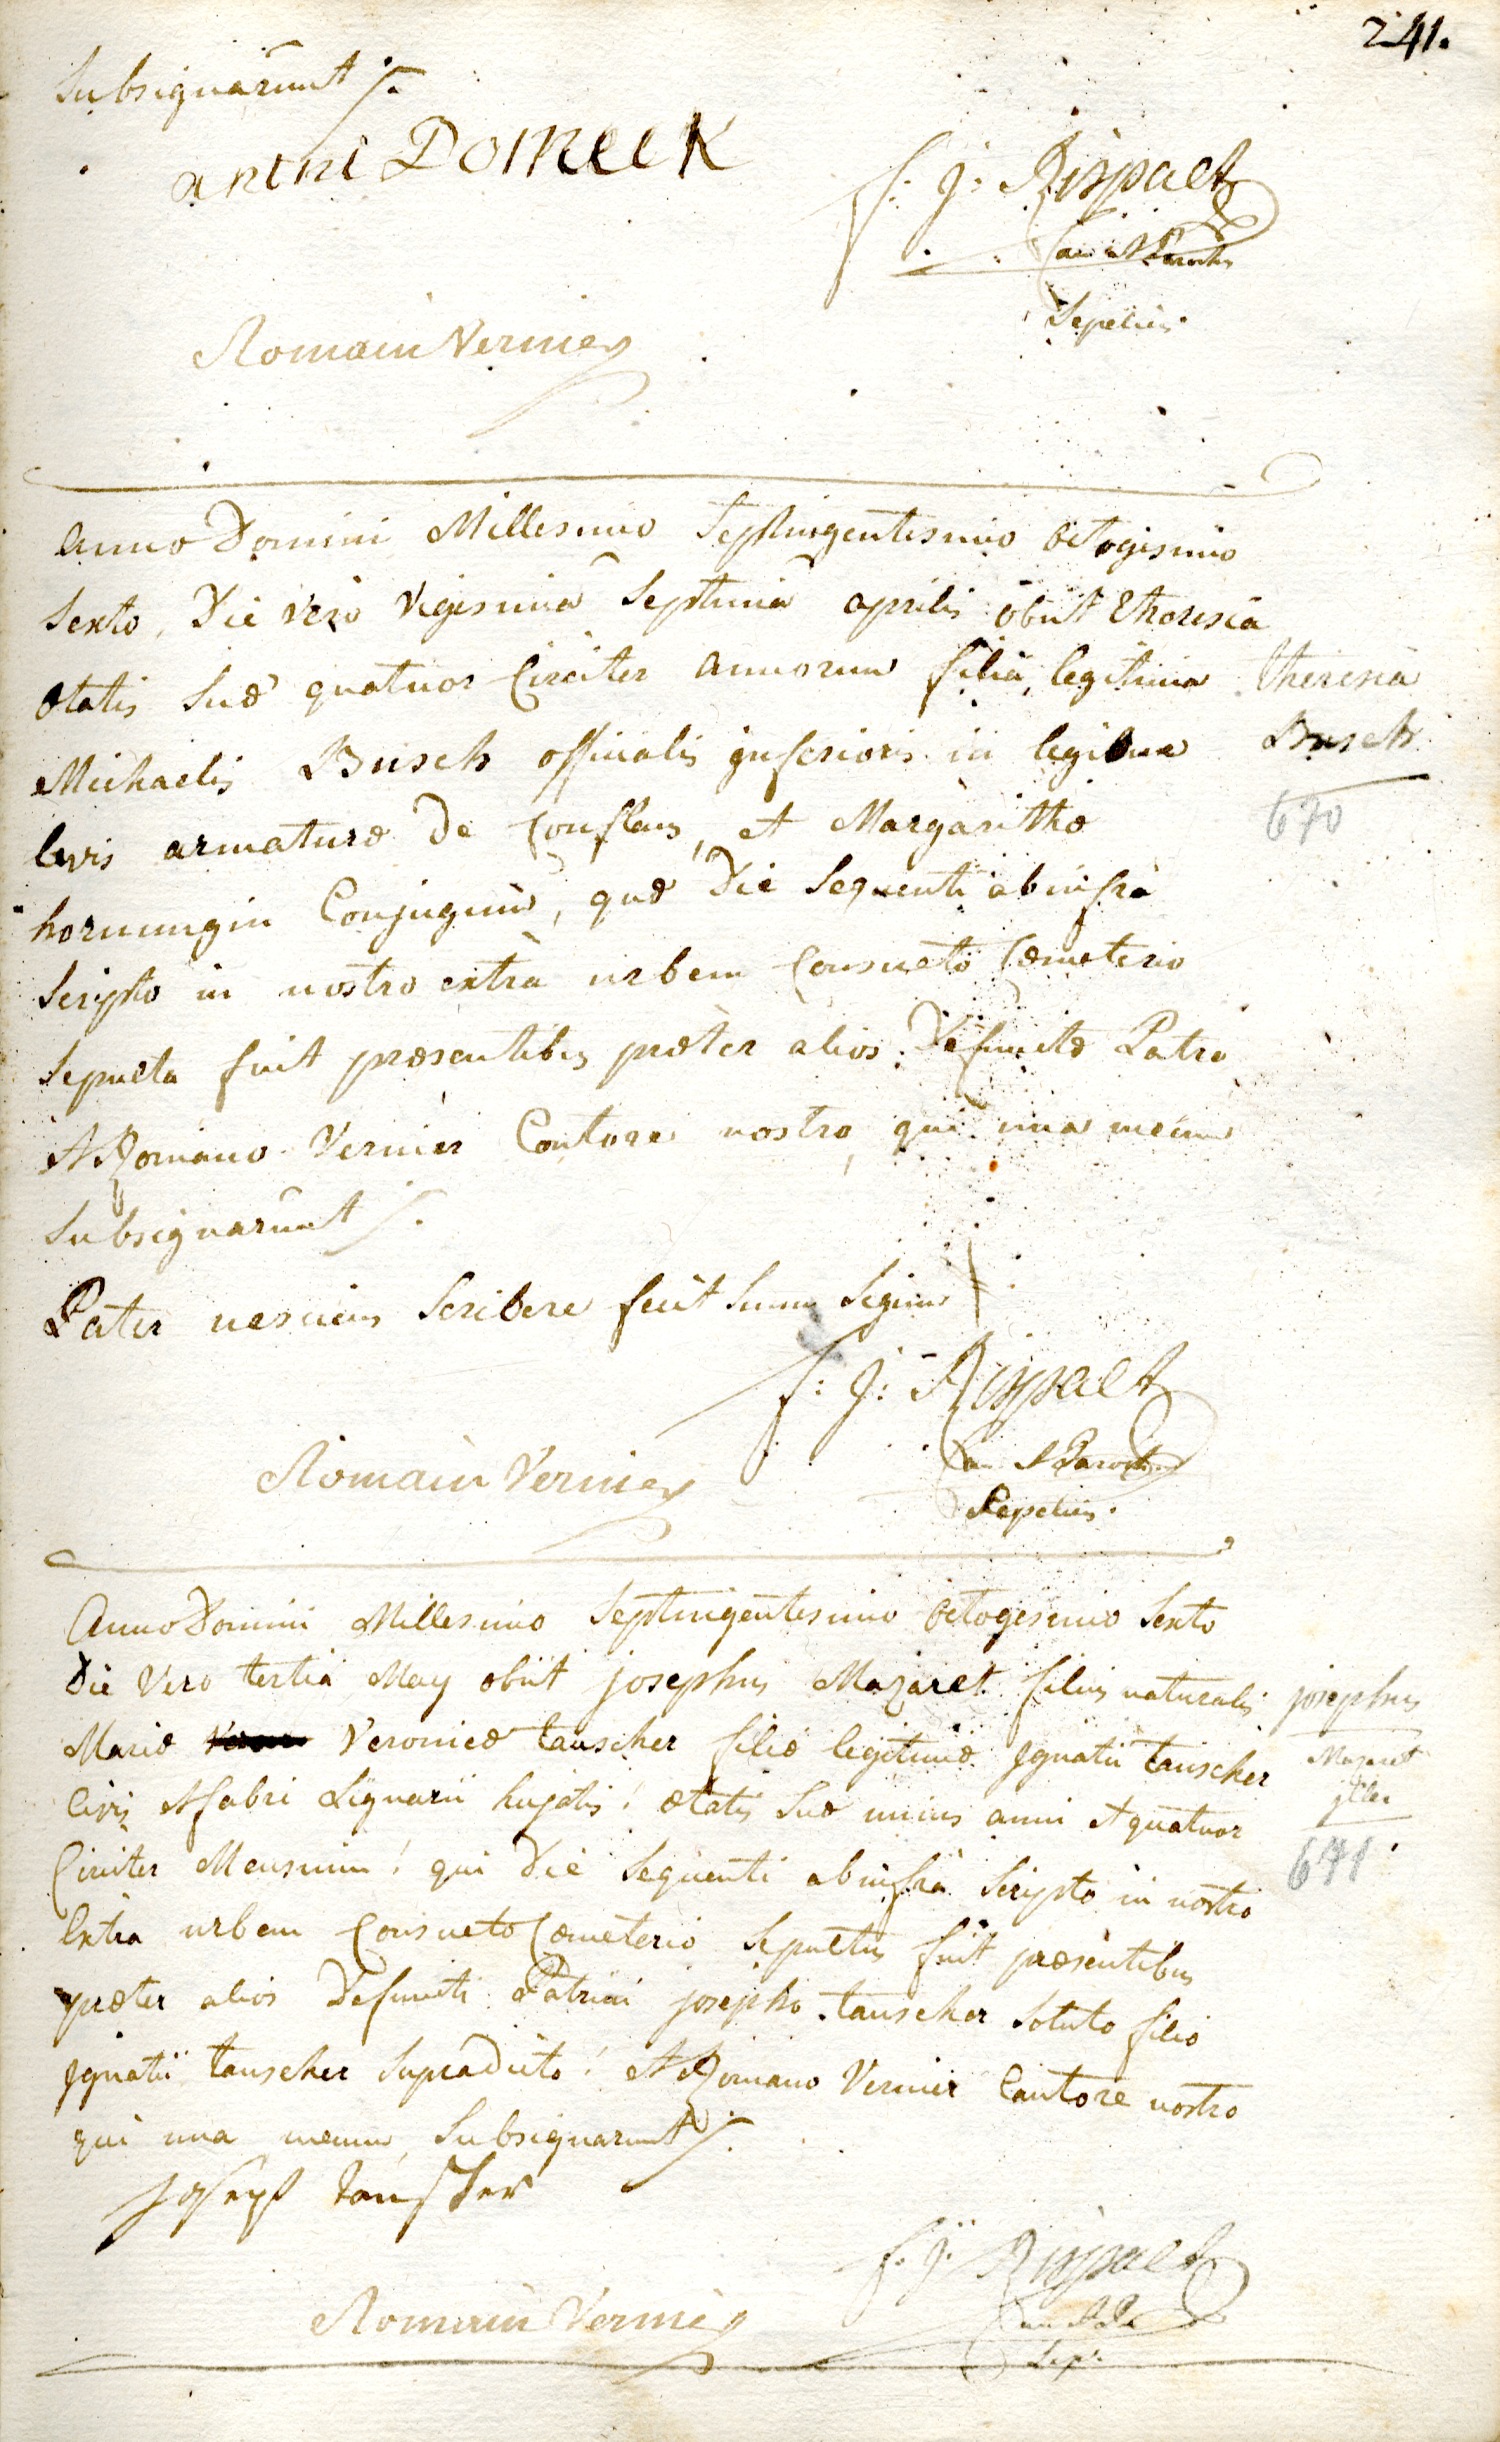 241.
Subsignarunt /.
antni Domeck
f: j: Rispalt
Can & Parochus
Sepeliens
Romain Vernier
Anno Domini Millesimo Septingentesimo Octogesimo
Sexto, Die vero Vigesima Septima aprilis obiit Theresia
ætatis suæ quatuor Circiter annorum filia legitima
Theresia
Michaelis Busch officialis inferioris in legione
Busch
levis armaturæ de Conflans, et Margarithæ
670
hornungin Conjugum, quæ Die Sequenti ab infra
Scripto in nostro extra urbem Consueto Cœmeterio
Sepulta fuit præsentibus præter alios Defunctæ Patre
& Romano Vernier Cantore nostro, qui una mecum
Subsignarunt /.
Pater nesciens Scribere fecit Suum Signum +
f: j: Rispalt
Can & Parochus
Romain Vernier
Sepeliens.
Anno Domini Millesimo Septingentesimo Octogesimo Sexto
Die Vero tertia May obiit josephus Mazaret filius naturalis
josephus
Mariæ Veronicæ tauscher filiæ legitimæ Ignatii tauscher
Mazaret
Civis & fabri Lignarii hujatis! ætatis Suæ unius anni & quatuor
Circiter Mensium! qui Die Sequenti ab infra Scripto in nostro
671
Extra urbem Consueto Cœmeterio Sepultus fuit præsentibus
præter alios Defuncti Patrini josepho tauscher Soluto filio
Ignatii tauscher Supradicto! & Romano Vernier Cantore nostro
qui una mecum Subsignarunt /.
Joseph tauscher
f: j: Rispalt
Romain Vernier
Sep: